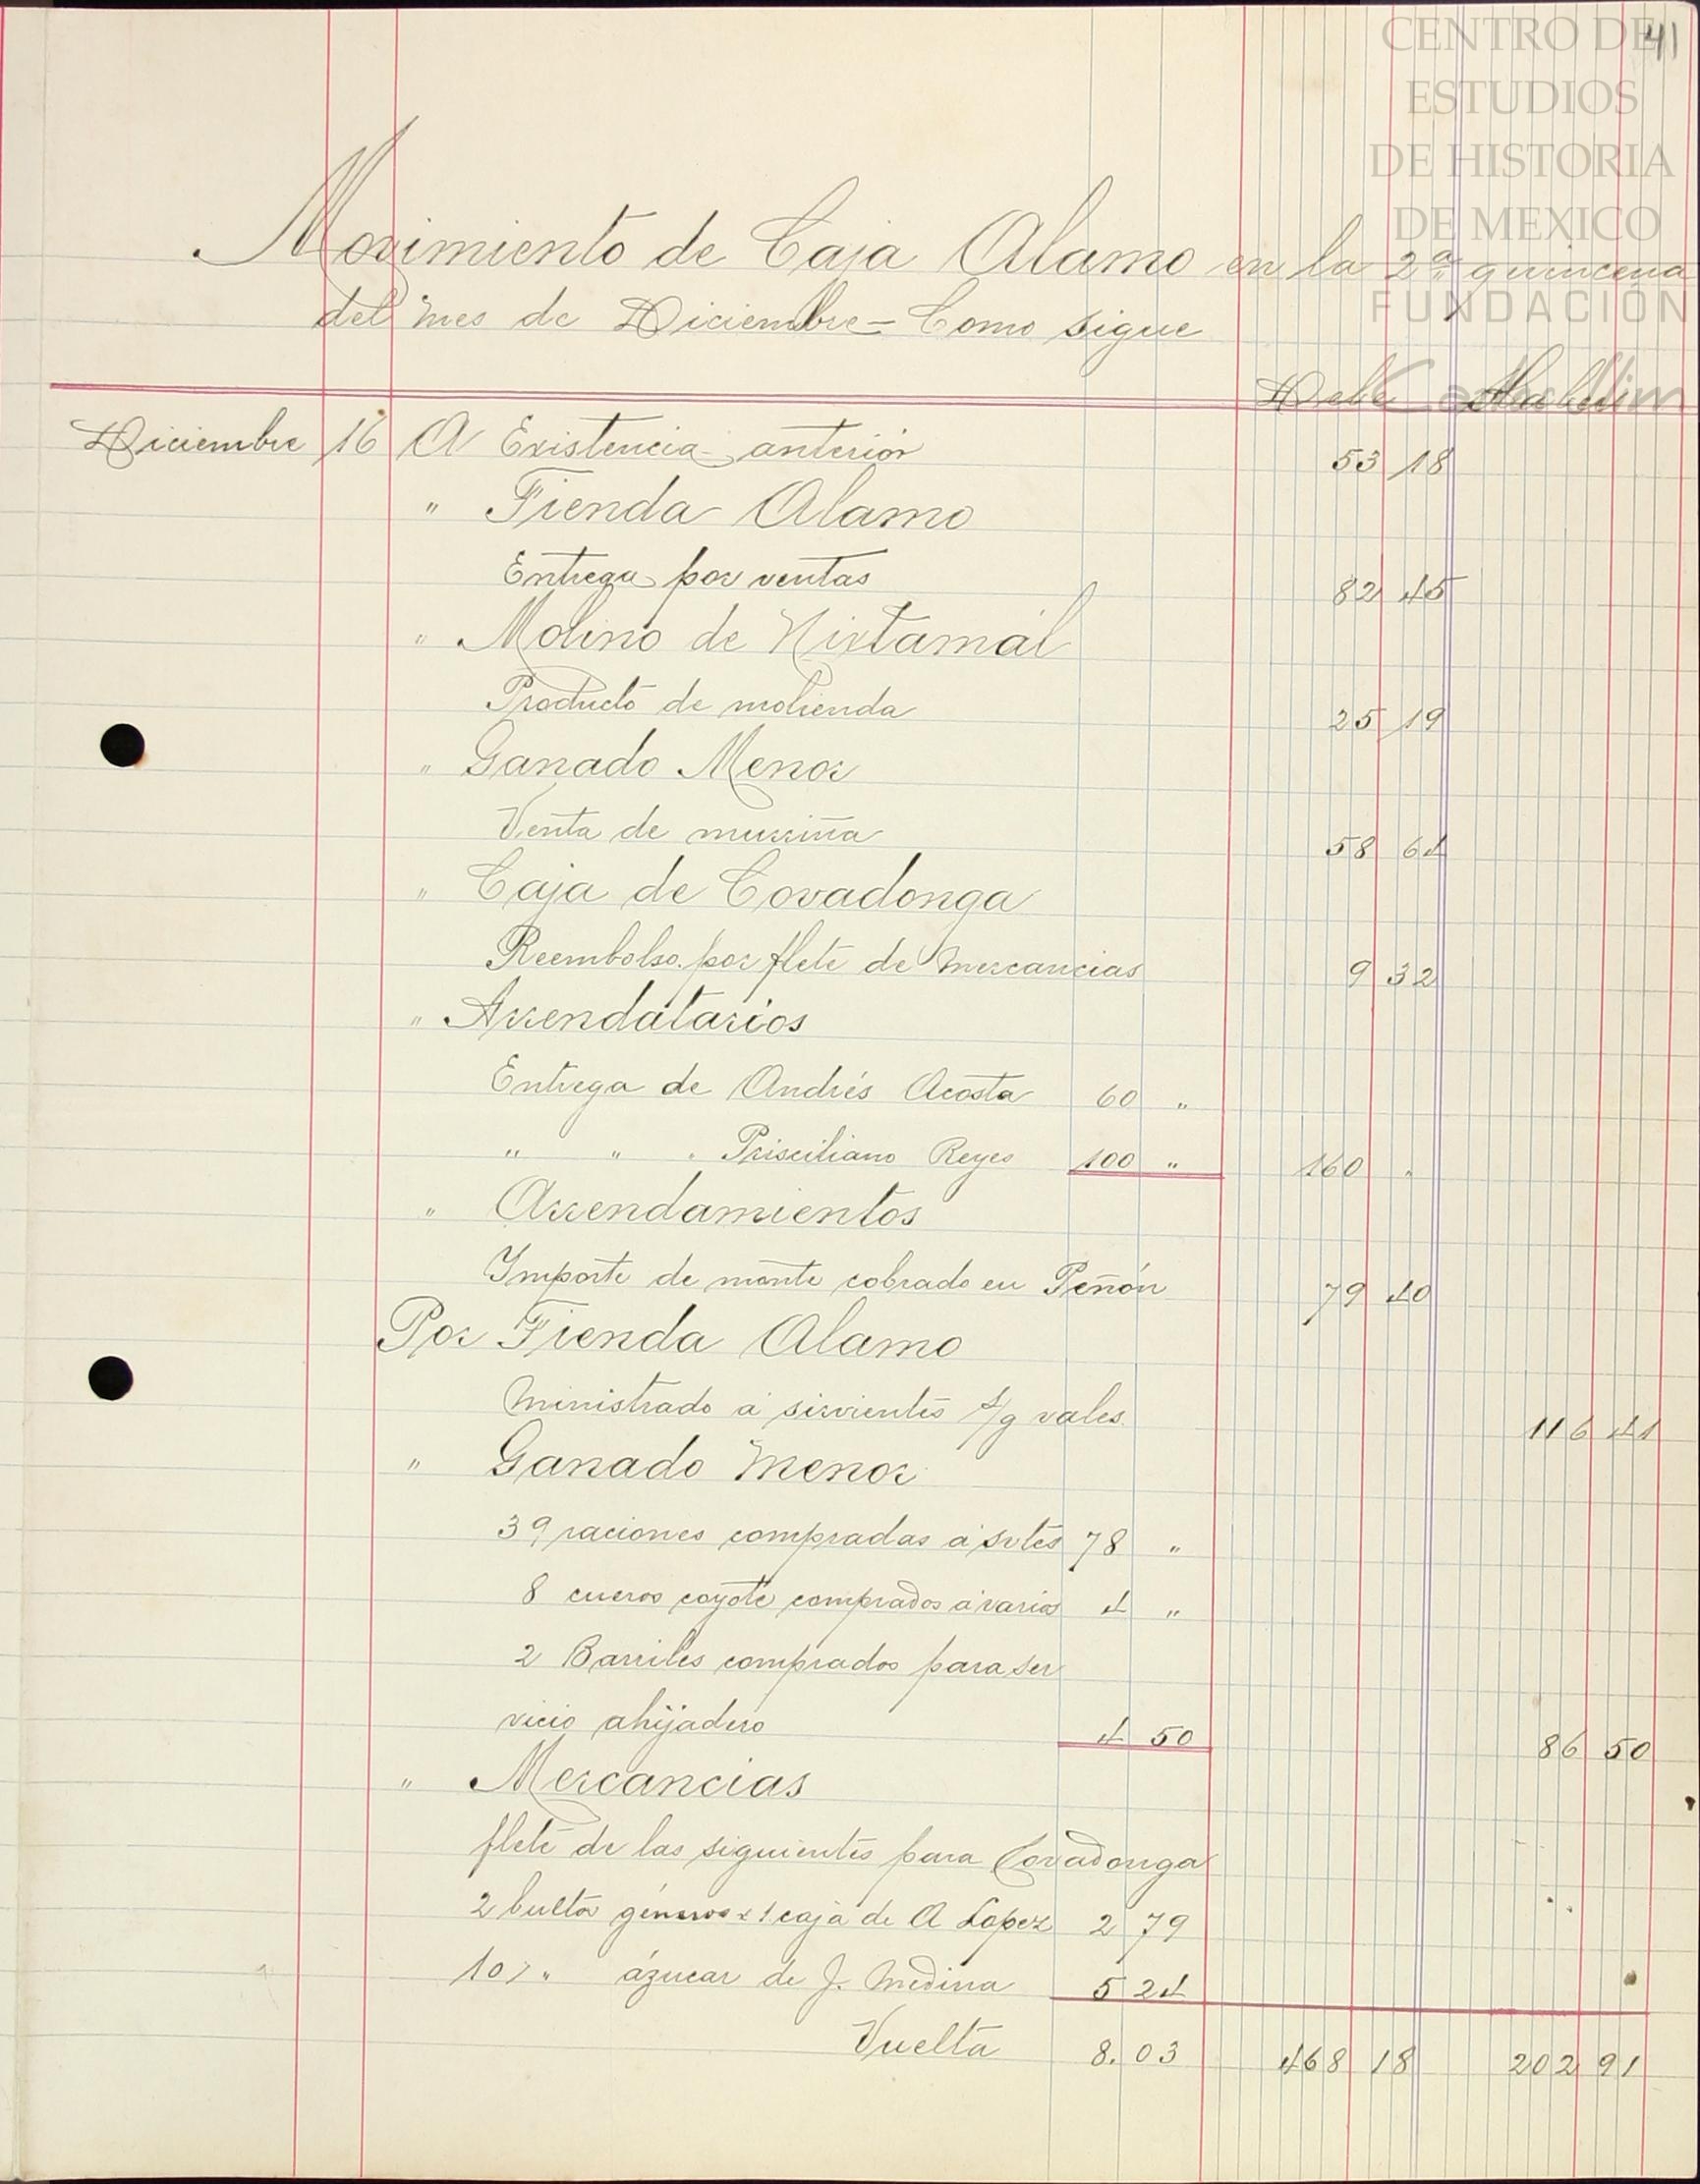 41
CENTRO DE
ESTUDIOS
DE HISTORIA
DE MEXICO
FUNDACIÓN
Movimiento de Caja Alamo en la 2ª quincena
del mes de Diciembre = Como sigue
Debe Haber
Diciembre 16 A Existencia anterior 53 18
" Tienda Alamo
Entrega por ventas 82 45
" Molino de Nixtamál
Producto de molienda 25 19
" Ganado Menor
Venta de murriña 58 64
" Caja de Covadonga
Reembolso por flete de mercancias 9 32
" Arrendatarios
Entrega de Andrés Acosta 60 "
" " " Prisciliano Reyes 100 " 160 "
" Arrendamientos
Importe de monte cobrado en Peñón 79 40
Por Tienda Alamo
Ministrado á sirvientes s/g vales 116 41
" Ganado Menor
39 raciones compradas á svtes 78 "
8 cueros coyote comprados á varios 4 "
2 Barriles comprados para ser
vicio ahijadero 4 50 86 50
" Mercancias
flete de las siguientes para Covadonga
2 bultos géneros x 1 caja de A Lopez 2 79
10 " ázucar de J. Medina 5 24
Vuelta 8.03 468 18 202 91